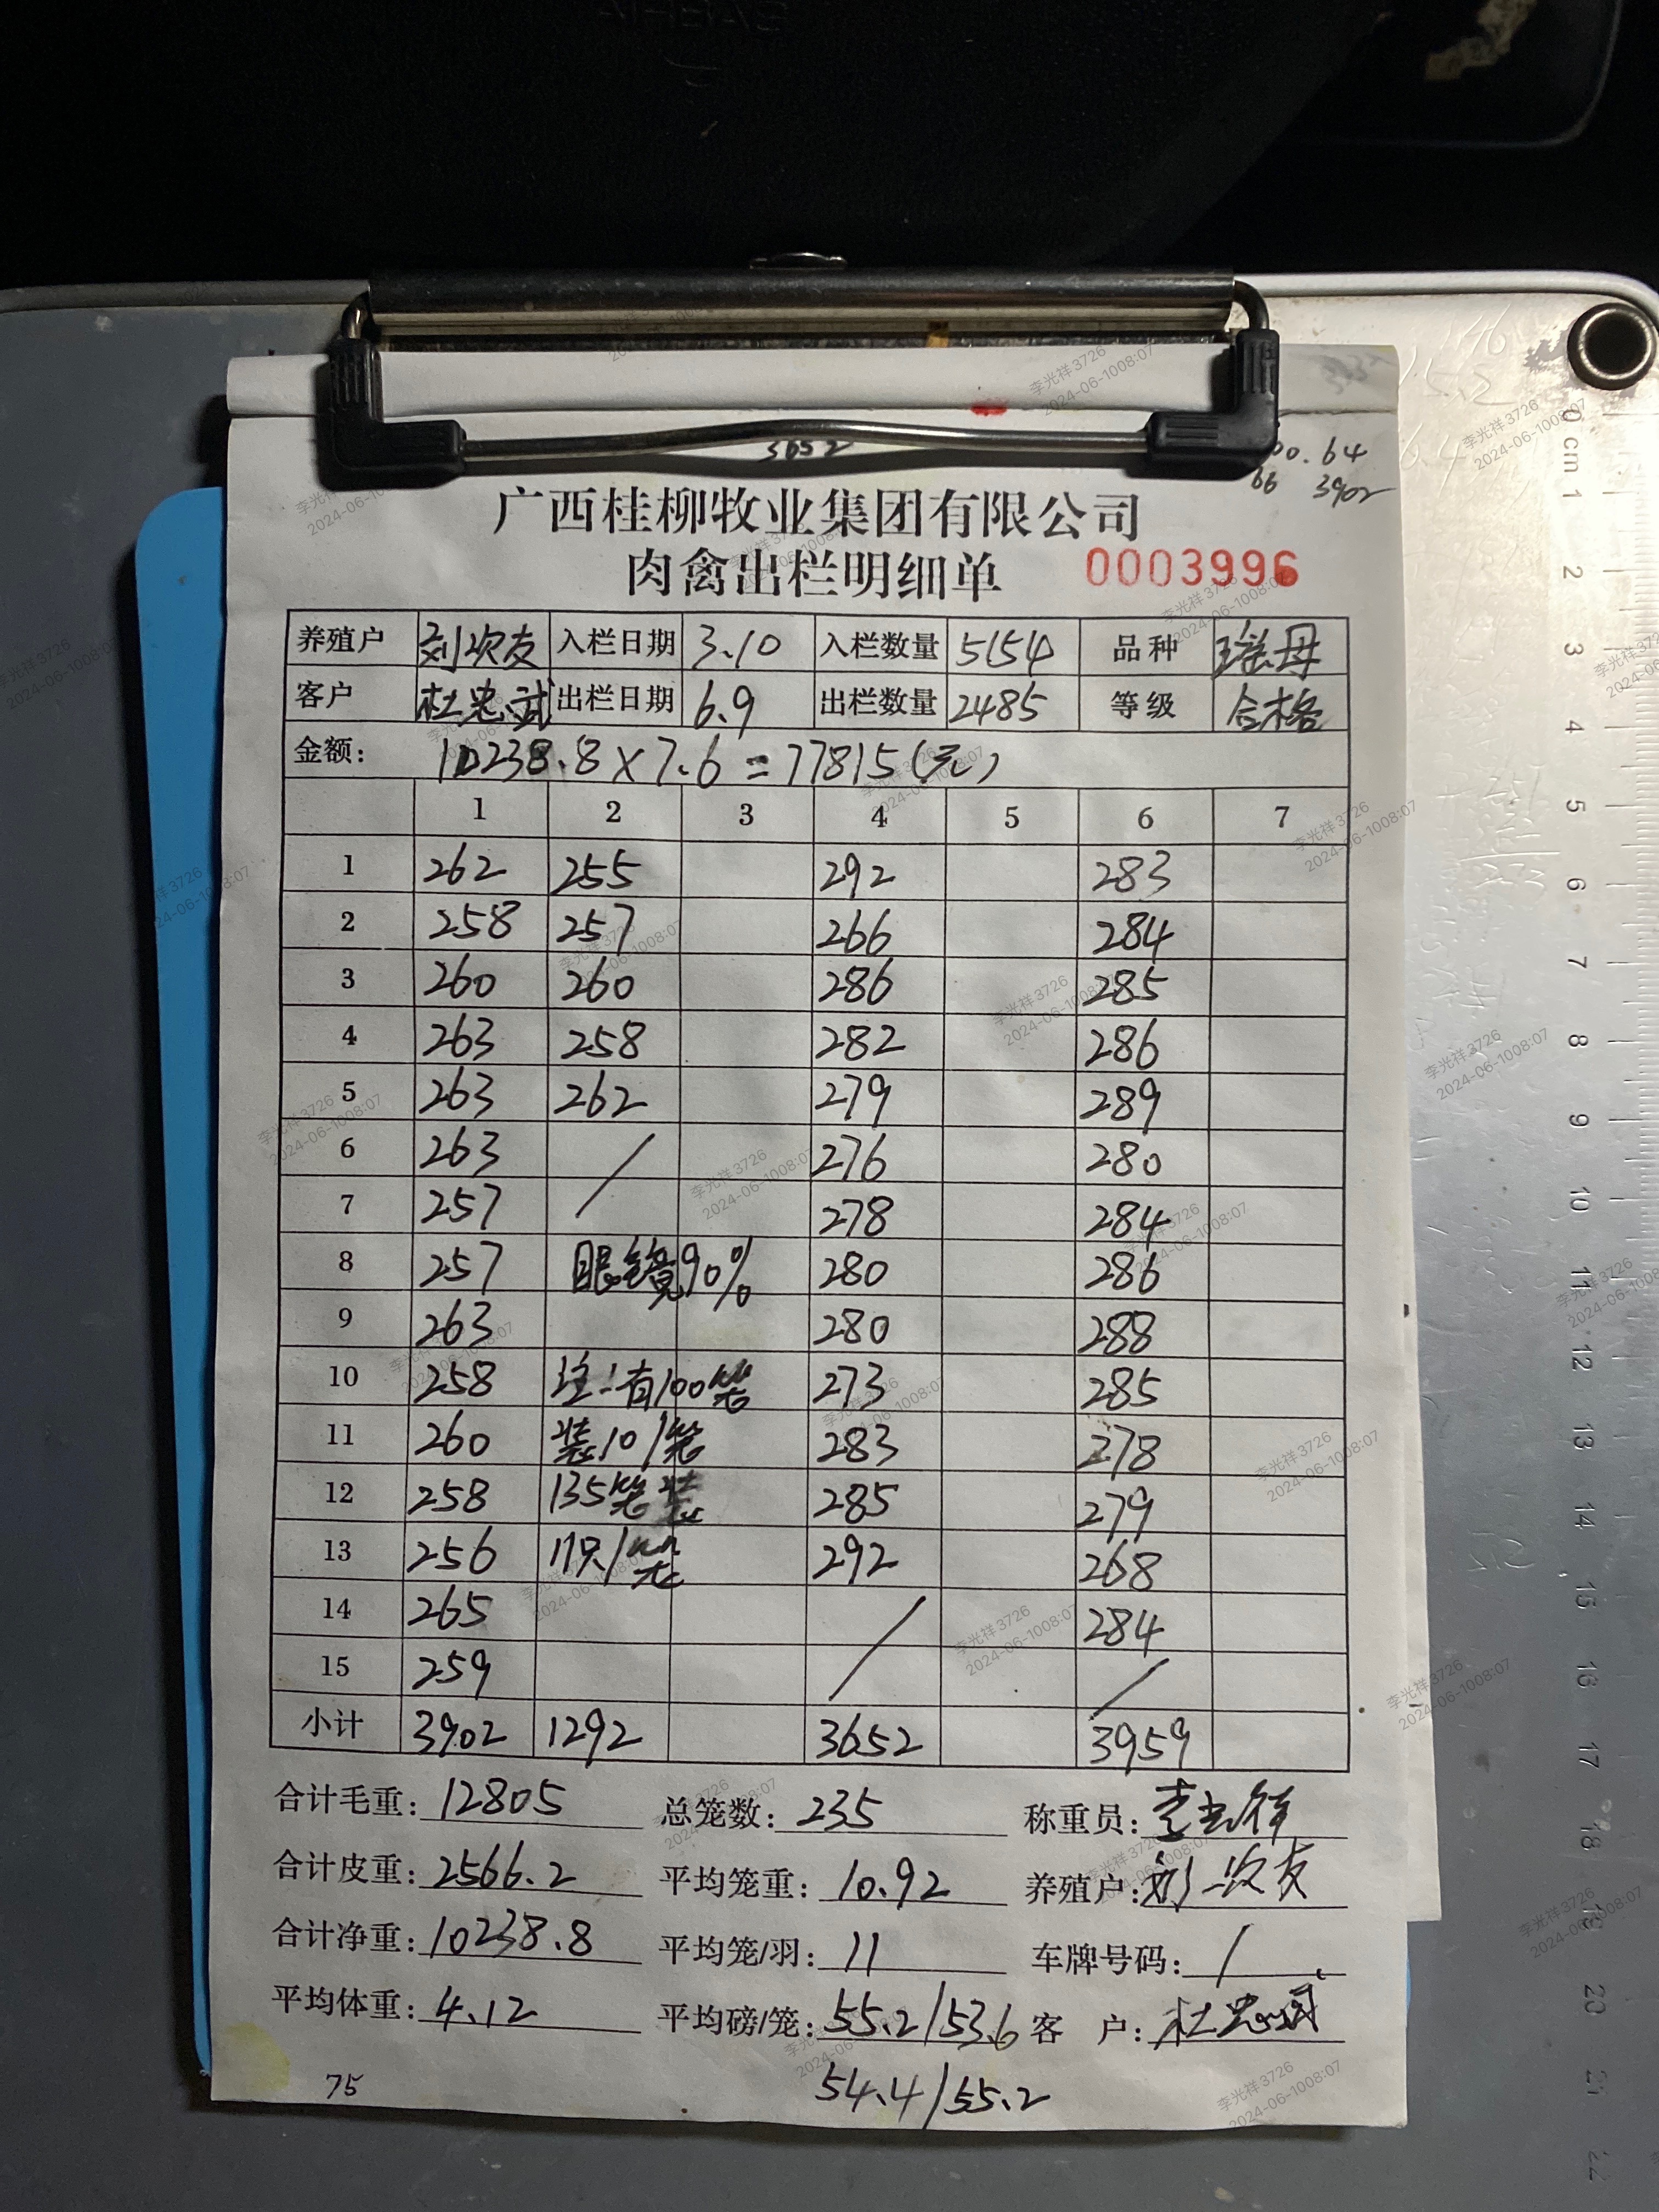 3652
00.64
66 3902
广西桂柳牧业集团有限公司
肉禽出栏明细单 0003996
养殖户 刘次友 入栏日期 3.10 入栏数量 5154 品种 瑶母
客户 杜忠武 出栏日期 6.9 出栏数量 2485 等级 合格
金额: 10238.8×7.6=77815(元)
1 2 3 4 5 6 7
1 262 255 292 283
2 258 257 266 284
3 260 260 286 285
4 263 258 282 286
5 263 262 279 289
6 263 / 276 280
7 257 278 284
8 257 眼镜90% 280 286
9 263 280 288
10 258 注:有100笼 273 285
11 260 装10/笼 283 278
12 258 135笼装 285 279
13 256 11只/笼 292 268
14 265 / 284
15 259 /
小计 3902 1292 3652 3959
合计毛重: 12805 总笼数: 235 称重员: 李光祥
合计皮重: 2566.2 平均笼重: 10.92 养殖户: 刘次友
合计净重: 10238.8 平均笼/羽: 11 车牌号码: /
平均体重: 4.12 平均磅/笼: 55.2/53.6 客 户: 杜忠武
75 54.4/55.2
李光祥3726
2024-06-1008:07
0 cm 1 2 3 4 5 6 7 8 9 10 11 12 13 14 15 16 17 18 19 20 21 22